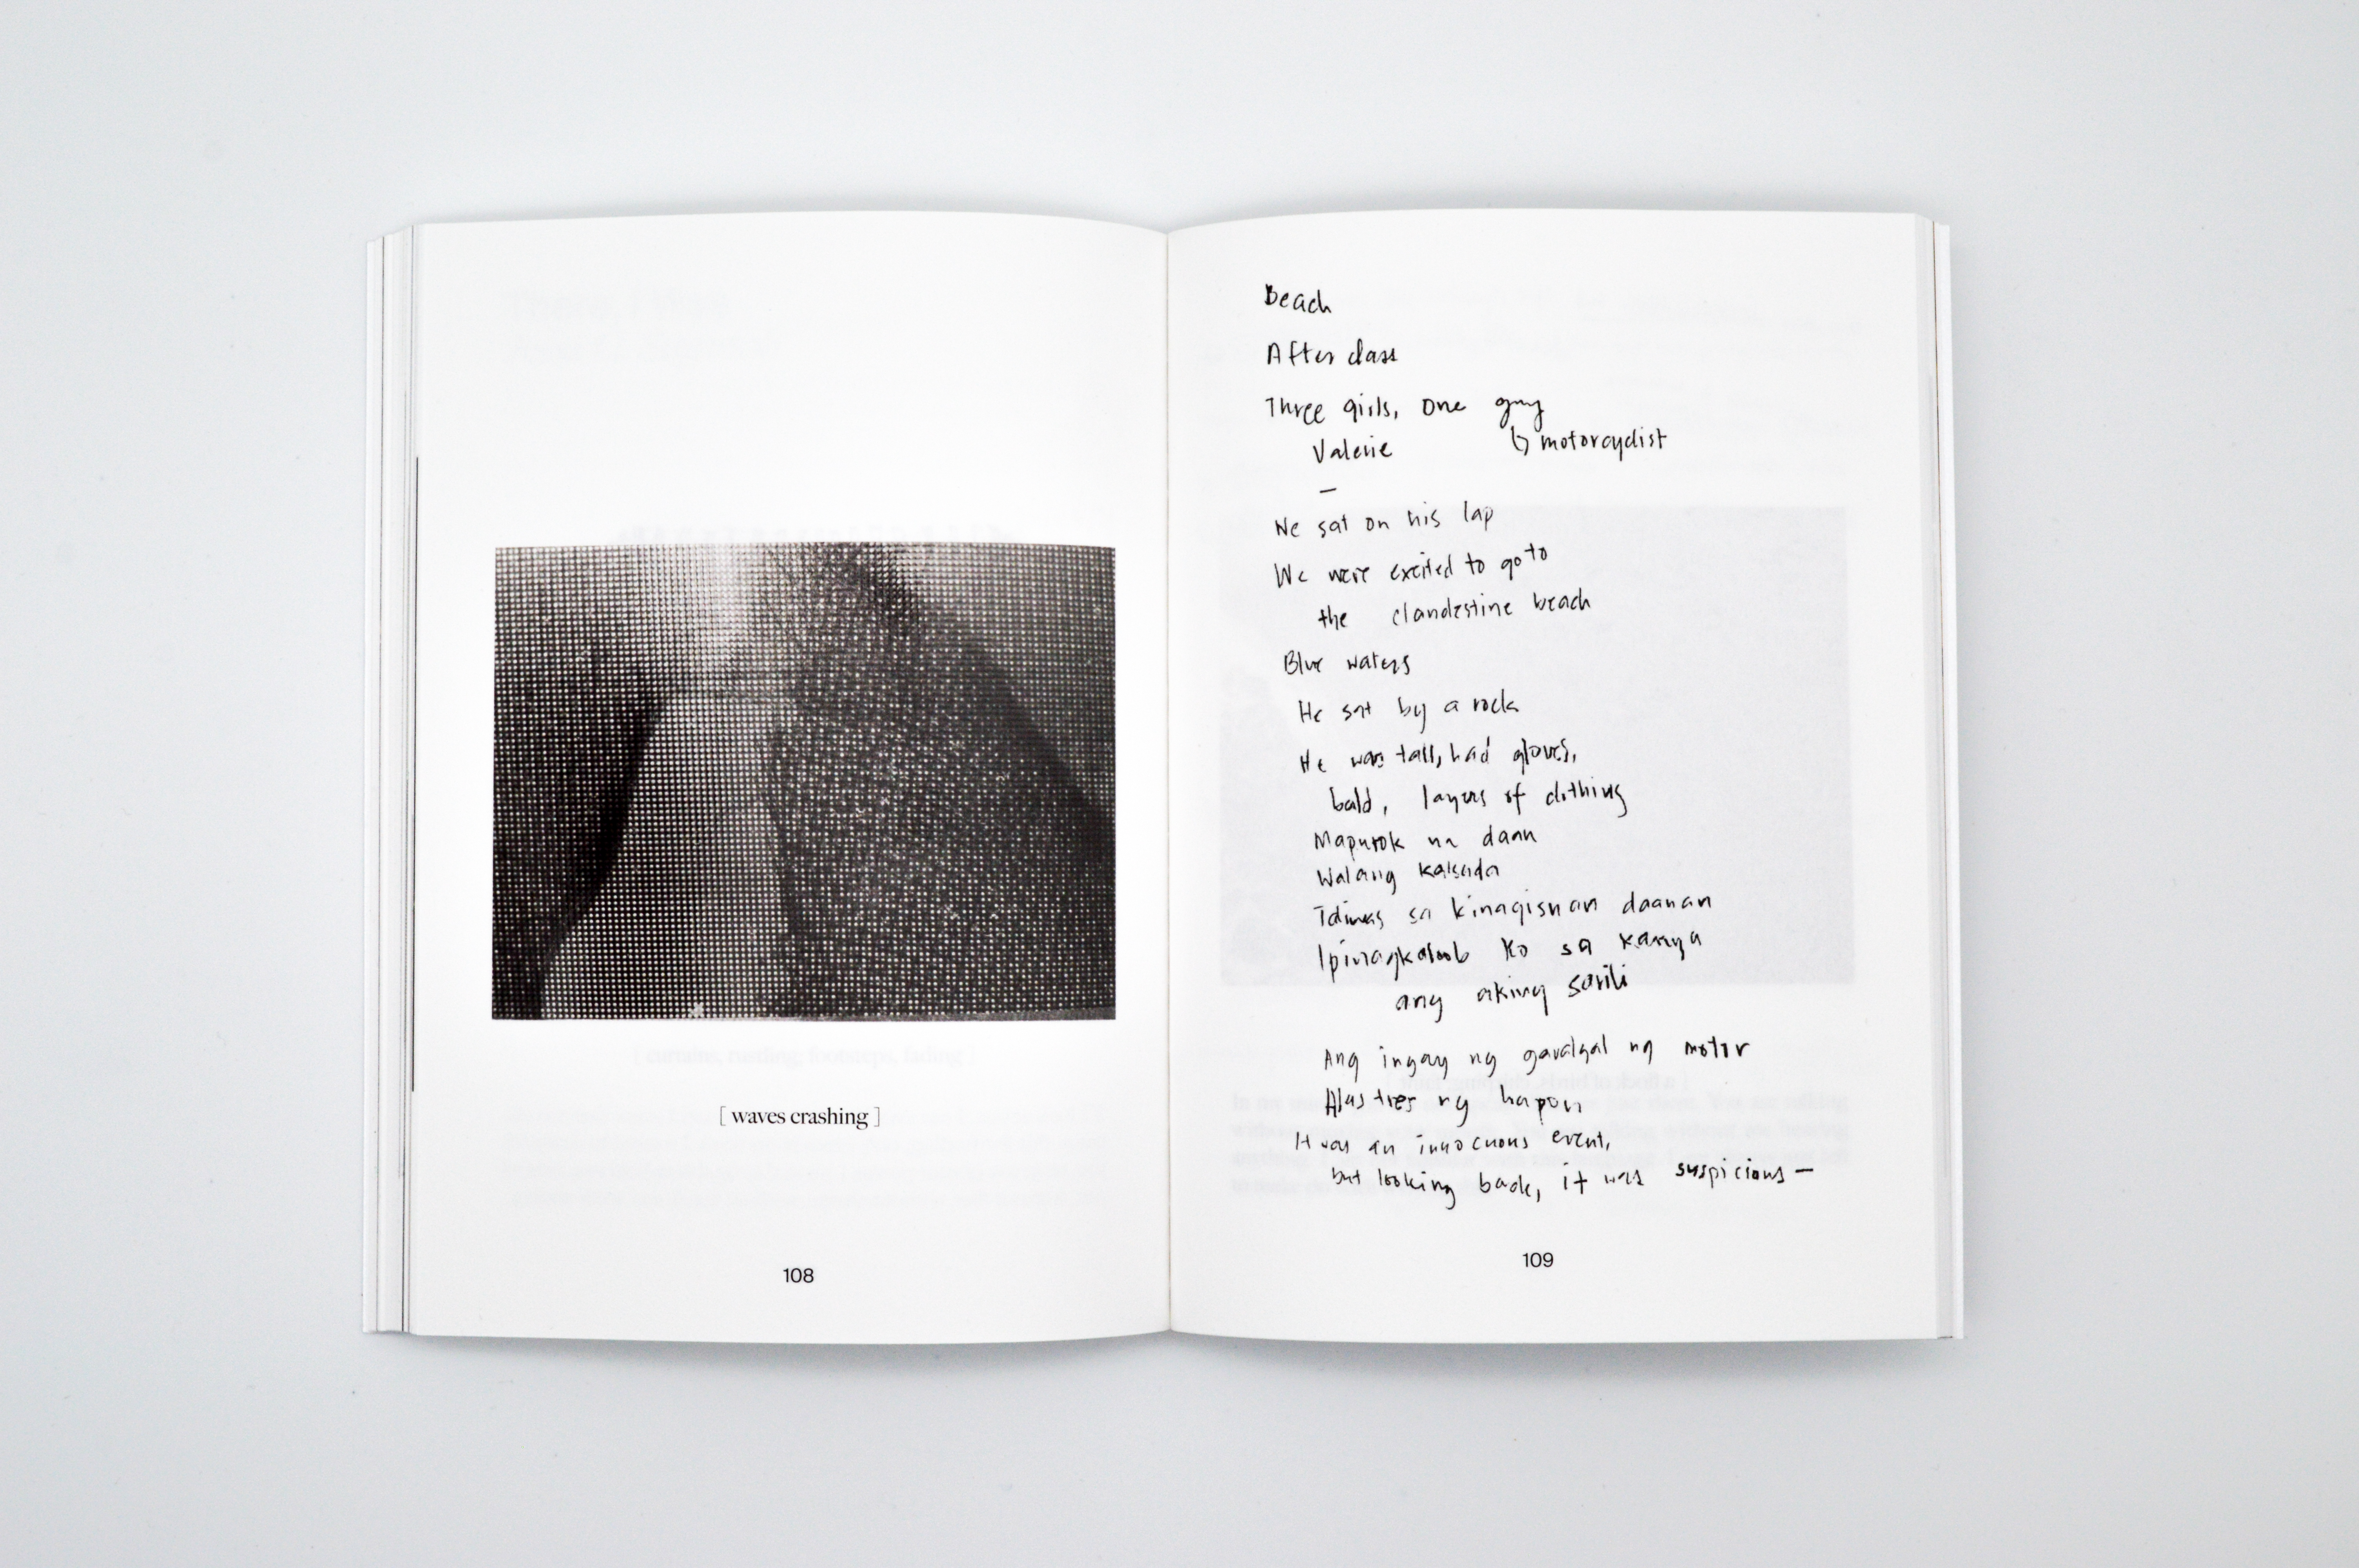 [ waves crashing ]
108
Beach
After class
Three girls, one guy
Valerie ↳ motorcyclist
—
We sat on his lap
We were excited to go to
the clandestine beach
Blue waters
He sat by a rock
He was tall, had gloves,
bald, layers of clothing
Maputok na daan
Walang kalsada
sa kinagisnan daanan
Ipinagkaloob ko sa kanya
ang aking sarili
Ang ingay ng garalgal ng motor
Alas tres ng hapon
It was an innocuous event,
but looking back, it was suspicious —
109